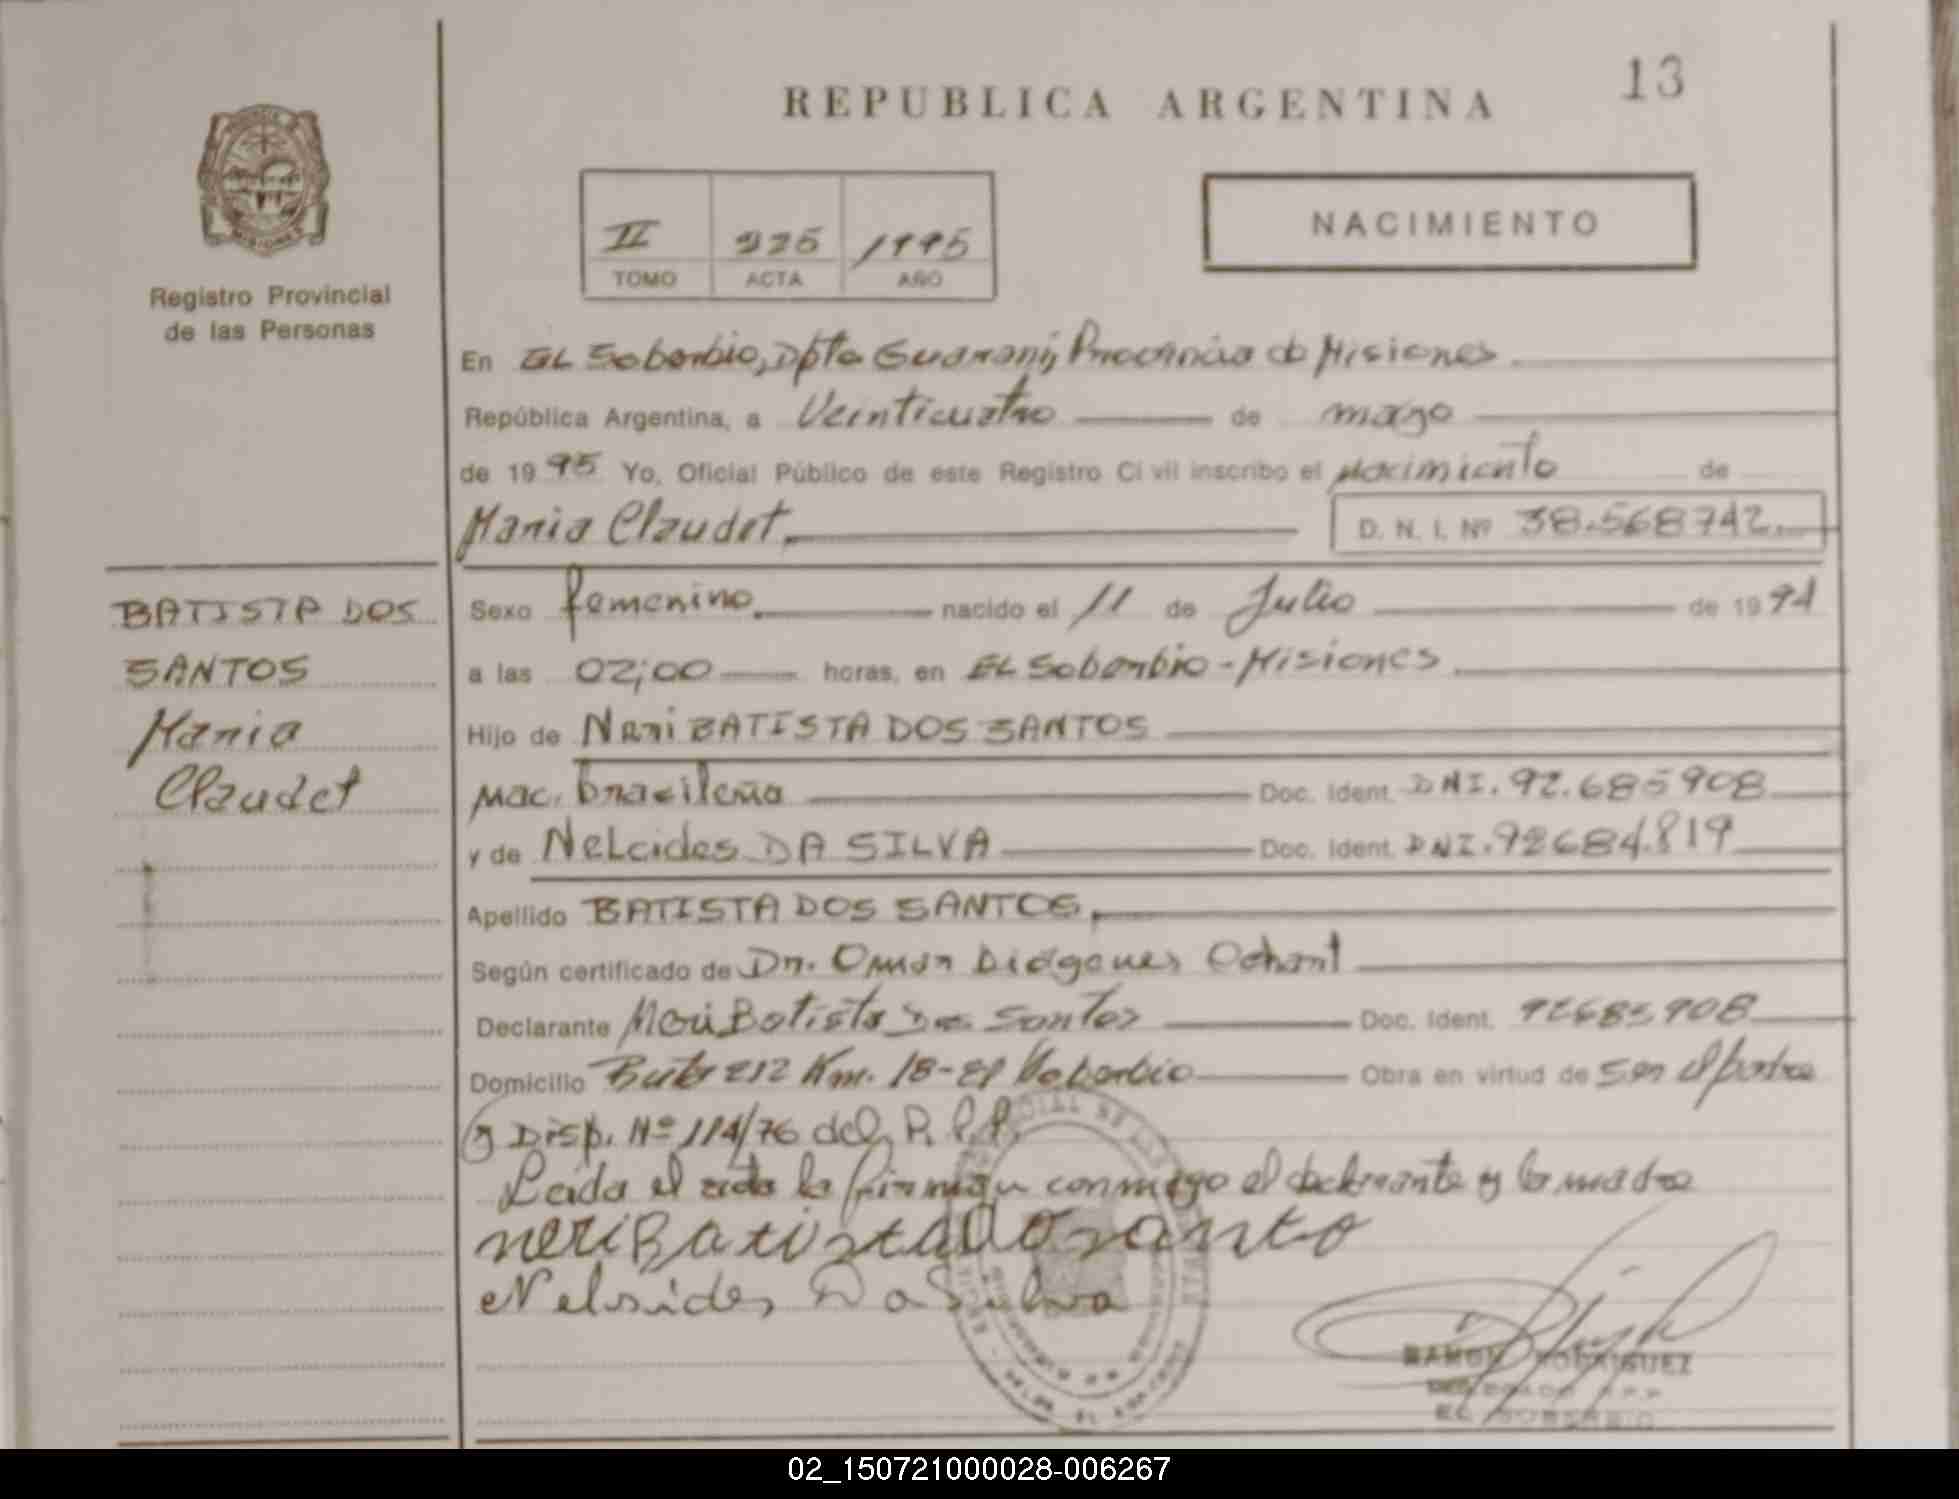 REPUBLICA ARGENTINA
13
MISIONES
Registro Provincial
de las Personas
II 225 1995
TOMO ACTA AÑO
NACIMIENTO
En El Soberbio, Dpto Guarani, Provincia de Misiones
República Argentina, a Veinticuatro de marzo
de 1995 Yo, Oficial Público de este Registro Civil inscribo el nacimiento de
Maria Claudet D. N. I. Nº 38.568742
BATISTA DOS
SANTOS
Maria
Claudet
Sexo femenino nacido el 11 de Julio de 1994
a las 02;00 horas, en El Soberbio - Misiones
Hijo de Neri BATISTA DOS SANTOS
nac. brasileña Doc. Ident. DNI. 92.685908
y de Nelcides DA SILVA Doc. Ident. DNI. 92684.819
Apellido BATISTA DOS SANTOS
Según certificado de Dr. Omar Diógenes
Declarante Neri Batista Dos Santos Doc. Ident. 92685908
Domicilio Ruta 212 Km. 18 - El Soberbio Obra en virtud de ser el padre
y Disp. Nº 114/76 del R.P.P.
Leida el acta la firman conmigo el declarante y la madre
neri Batista do santo
Nelsides Da Silva
RAMON RODRIGUEZ
DELEGADO R.P.P.
EL SOBERBIO
02_150721000028-006267